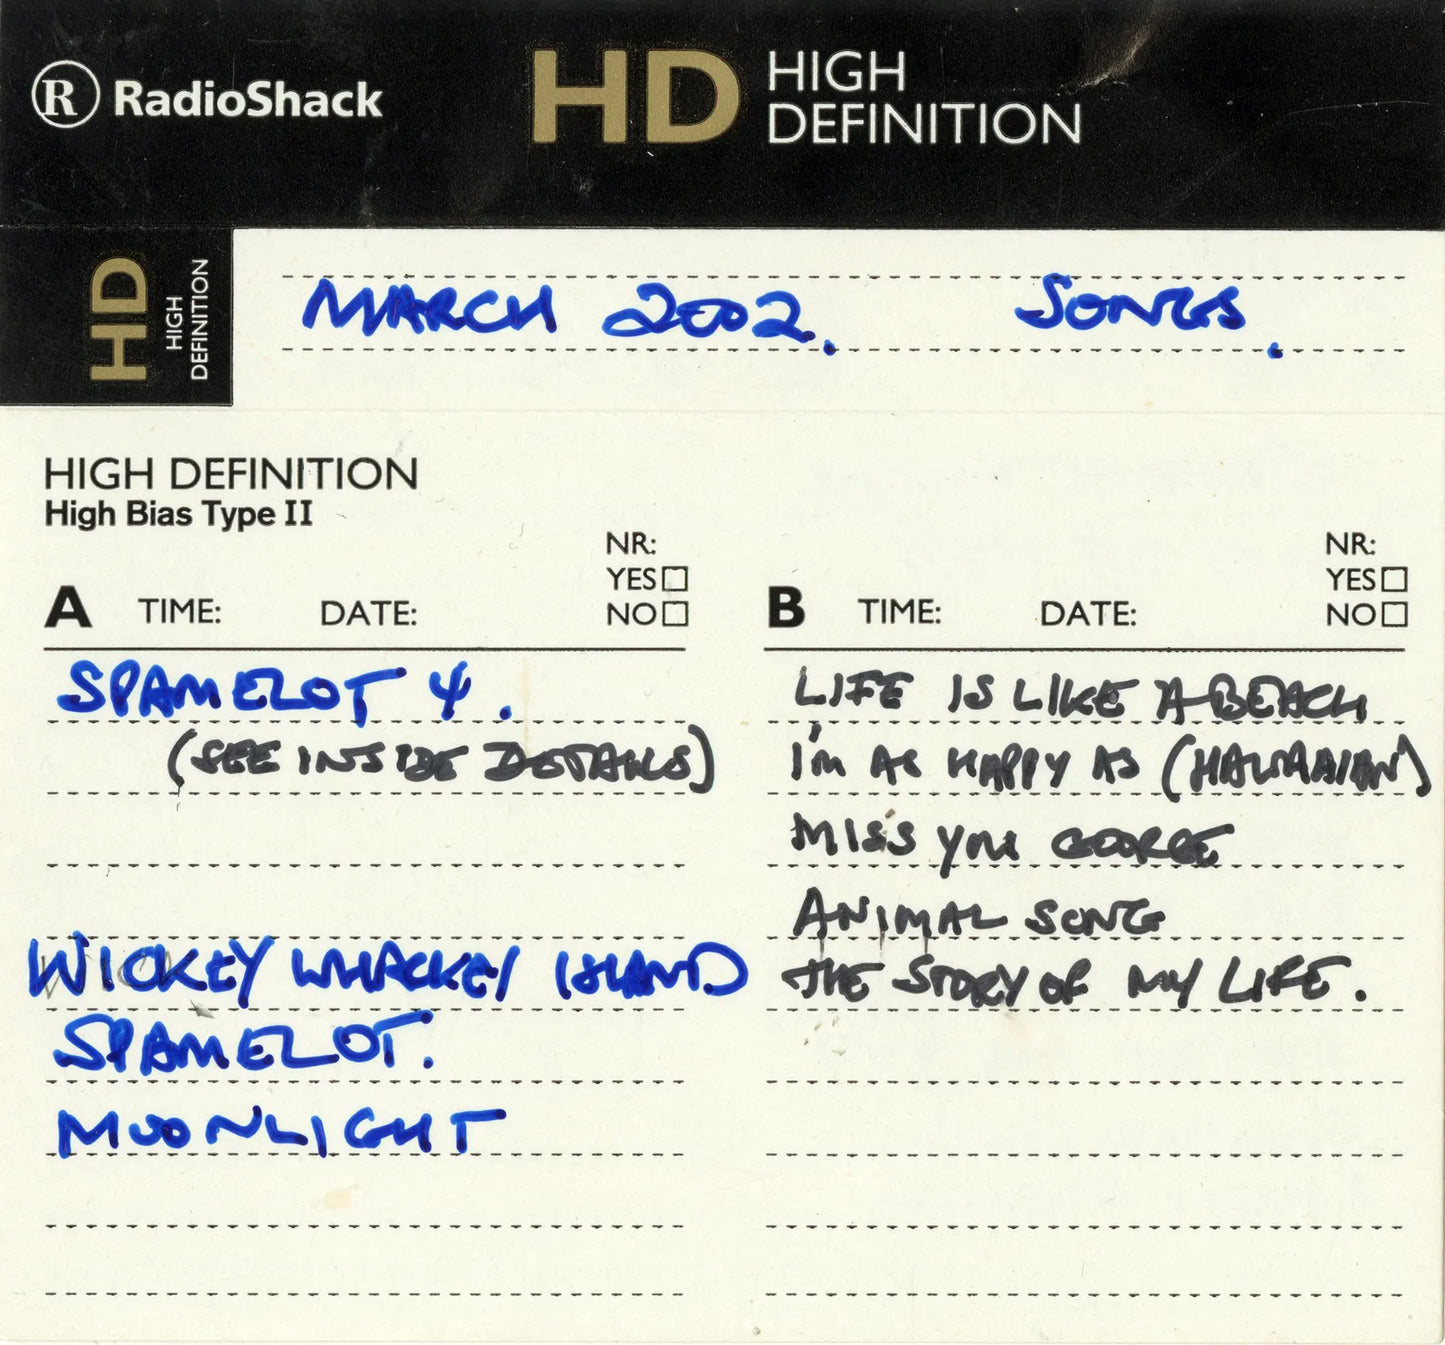 R RadioShack
HD HIGH DEFINITION
HD HIGH DEFINITION
MARCH 2002. SONGS.
HIGH DEFINITION
High Bias Type II
A TIME: DATE: NR: YES NO
SPAMELOT 4.
(SEE INSIDE DETAILS)
WICKEY WHACKEY ISLAND
SPAMELOT.
MOONLIGHT
B TIME: DATE: NR: YES NO
LIFE IS LIKE A BEACH
I'm AS HAPPY AS (HAWAAIAN)
MISS YOU GEORGE
ANIMAL SONG
THE STORY OF MY LIFE.